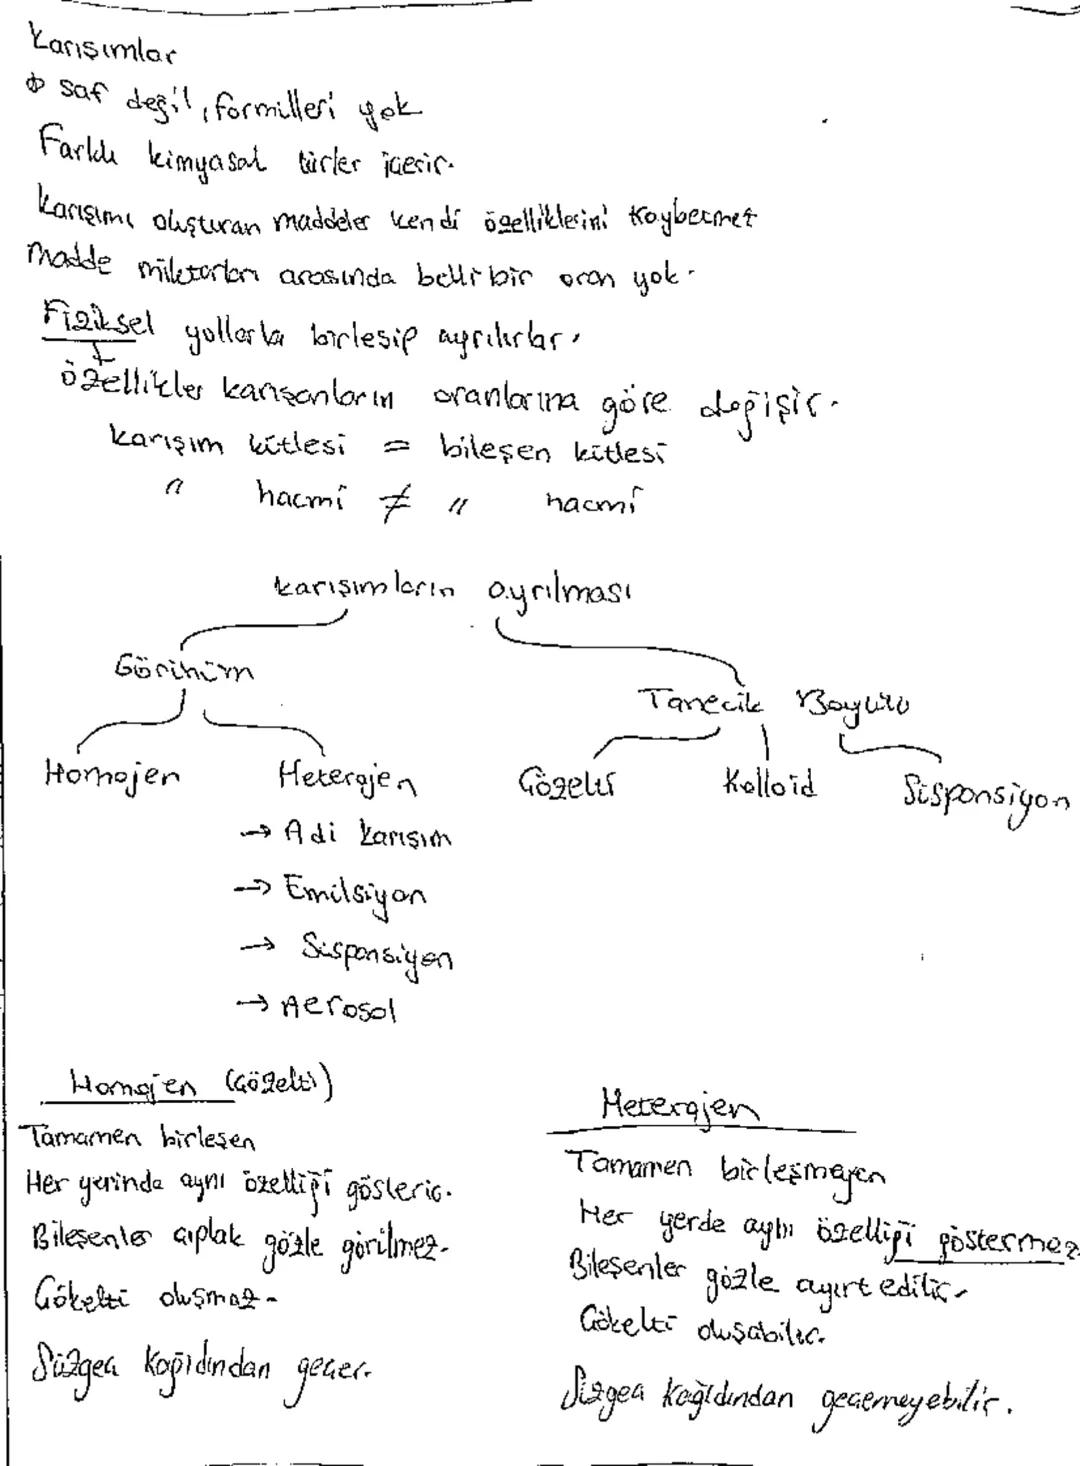 Karışımlar
saf değil, formülleri yok
Farklı kimyasal türler içerir.
Karışımı oluşturan maddeler kendi özelliklerini kaybetmez
Madde miktarları arasında belli bir oran yok.
Fiziksel yollarla birleşip ayrılırlar.
özellikler karışanların oranlarına göre değişir.
karışım kütlesi = bileşen kütlesi
" hacmi ≠ " hacmi
karışımların ayrılması
Görünüm
Tanecik Boyutu
Homojen Heterojen Çözelti Kolloid Süspansiyon
→ Adi karışım
→ Emülsiyon
→ Süspansiyon
→ Aerosol
Homojen (Çözelti)
Tamamen birleşen
Her yerinde aynı özelliği gösterir.
Bileşenler çıplak gözle görülmez.
Çökelti oluşmaz.
Süzgeç kağıdından geçer.
Heterojen
Tamamen birleşmeyen
Her yerde aynı özelliği göstermez
Bileşenler gözle ayırt edilir.
Çökelti oluşabilir.
Süzgeç kağıdından geçemeyebilir.